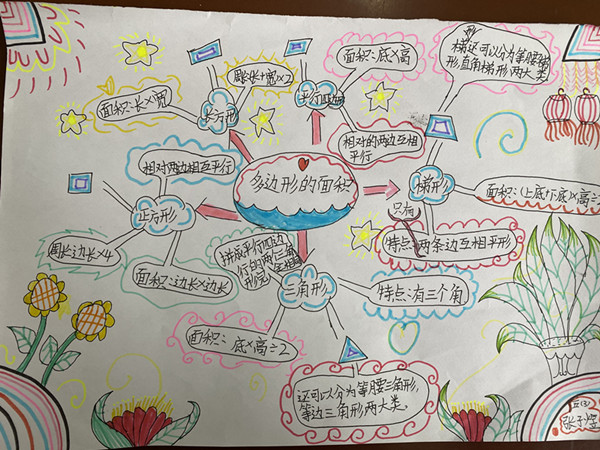 多边形的面积
长方形
面积:长×宽
周长:长+宽×2
平行四边形
面积:底×高
相对的两边互相
平行
梯形
梯形还可以分为等腰梯
形,直角梯形两大类
面积:(上底+下底)×高÷2
只有
特点:两条边互相平形
三角形
特点:有三个角
面积:底×高÷2
还可以分为等腰三角形,
等边三角形两大类。
正方形
相对两边相互平行
周长边长×4
面积:边长×边长